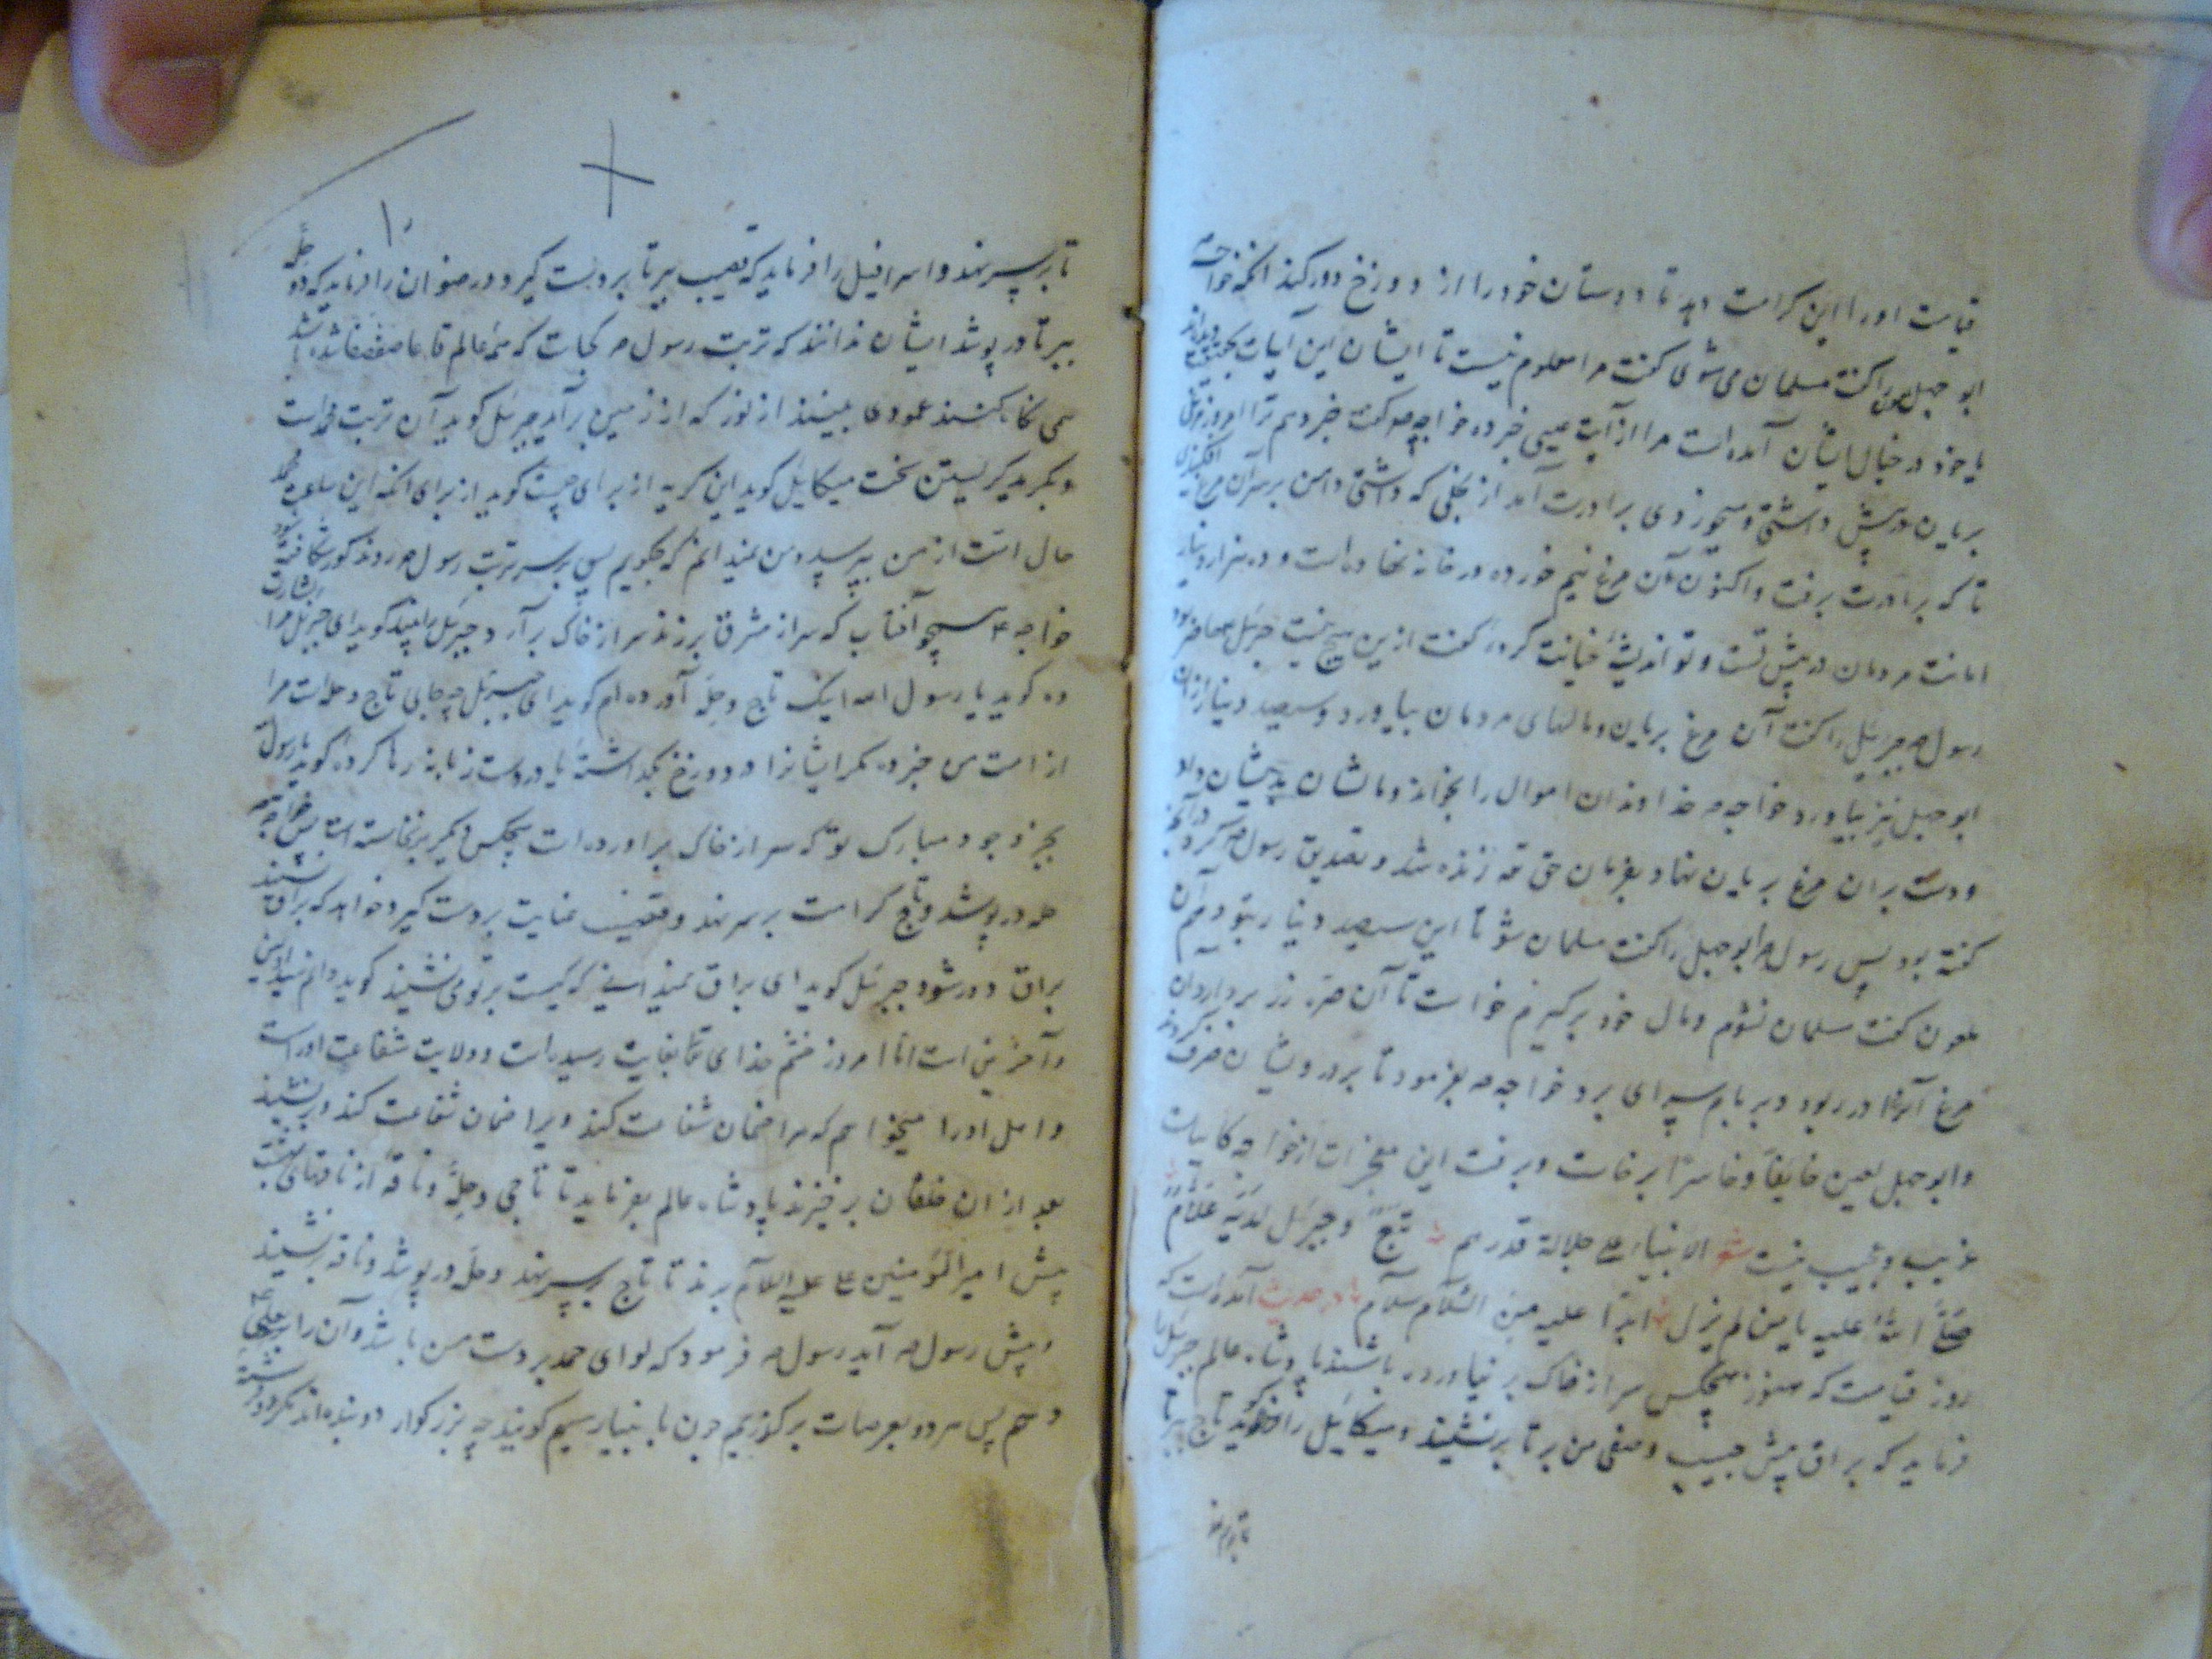 قیامت اورا این کرامت دهد تا دوستان خود را از دوزخ دور کند آنکه خواجه
ابو جهل را گفت مسلمان می شوی گفت مرا معلوم نیست تا ایشان این آیات
یا خود در خیال ایشان آمده است مرا از آیت عیسی خبر ده خواجه گفت خبر دهم ترا امروز مرغی
بریان در پیش داشتی و میخوردی برادرت آمد از بخلی که داشتی دامن بر سر آن مرغ
تا که برادرت برفت و اکنون آن مرغ نیم خورده در خانه نهاده است و ده هزار دینار
امانت مردمان در پیش تست و تو اندیشهٔ خیانت کردهٔ گفت ازین هیچ نیست جبرئیل حاضر بود
رسول جبرئیل را گفت آن مرغ بریان و مالهای مردمان بیاورد و سیصد دینار از آن
ابو جهل نیز بیاورد خواجه خداوندان اموال را بخواند و مالشان بدیشان داد
و دست بر آن مرغ بریان نهاد بفرمان حق زنده شد و تصدیق رسول کرد در آنچه
گفته بود پس رسول ابو جهل را گفت مسلمان شو تا این سیصد دینار بتو دهم آن
ملعون گفت مسلمان نشوم و مال خود برگیرم خواست تا آن صرهٔ زر بردارد آن
مرغ آنرا در ربود و بر بام سرای برد خواجه بفرمود تا بر درویشان صرف کردند
و ابو جهل لعین خایفاً و خاسراً برخاست و برفت این معجزات از خواجه کاینات
غریب و عجیب نیست شعر الانبیاء علی جلالة قدرهم تبع و جبرئیل لدیه غلام
صلی الله علیه یا من لم یزل ابدا علیه من السلام سلام در حدیث آمده است که
روز قیامت که هنوز هیچکس سر از خاک بر نیاورده باشند پادشاه عالم جبرئیل را
فرماید که براق پیش حبیب و صفی من بر تا بر نشیند و میکائیل را گوید تاج بر
تا بر سر نهد
تا بر سر نهد و اسرافیل را فرماید که قضیب ببر تا بر دست گیرد و رضوان را فرماید که دو حله
ببر تا در پوشد ایشان ندانند که تربت رسول کجاست که همه عالم قاعا صفصفا شده باشد
می نگاه کنند عمودی بینند از نور که از زمین برآید جبرئیل گوید آن تربت محمد است
و بگرید گریستن سخت میکائیل گوید این گریه از برای چیست گوید از برای آنکه این ساعت
حال امت از من بپرسد و من نمیدانم که چگویم پس بر سر تربت رسول روند گور شکافته
خواجه همچو آفتاب که سر از مشرق برزند سر از خاک برآرد جبرئیل را بیند گوید ای جبرئیل مرا بشارت
ده گوید یا رسول الله اینک تاج و حله آورده ام گوید ای جبرئیل چه جای تاج و حله است مرا
از امت من خبر ده مگر ایشانرا در دوزخ بگذاشتهٔ یا در دست زبانیه رها کردهٔ گوید یا رسول الله
بجز وجود مبارک تو که سر از خاک برآورده است هیچکس دیگر برنخاسته است پس خواجه
حله در پوشد و تاج کرامت بر سر نهد و قضیب عنایت بر دست گیرد خواهد که بر براق نشیند
براق دور شود جبرئیل گوید ای براق نمیدانی که کیست بر تو می نشیند گوید دانم سید اولین
و آخرین است اما امروز خشم خدای تعالی بغایت رسیده است و ولایت شفاعت او راست
و اصل او را میخواهم که مرا ضمان شفاعت کند ویرا ضمان شفاعت کند و بر نشیند
بعد از آن خلقان برخیزند پادشاه عالم بفرماید تا تاجی و حلهٔ و ناقهٔ از ناقهای بهشت
پیش امیر المؤمنین علی علیه السلام برند تا تاج بر سر نهد و حله در پوشد و بر ناقه بر نشیند
و پیش رسول آید رسول فرمود که لوای حمد بر دست من باشد و آن را بعلی
دهم پس هر دو بعرصات برگذریم چون بانبیا رسیم گویند چه بزرگوار دو بنده اند مگر دو فرشته